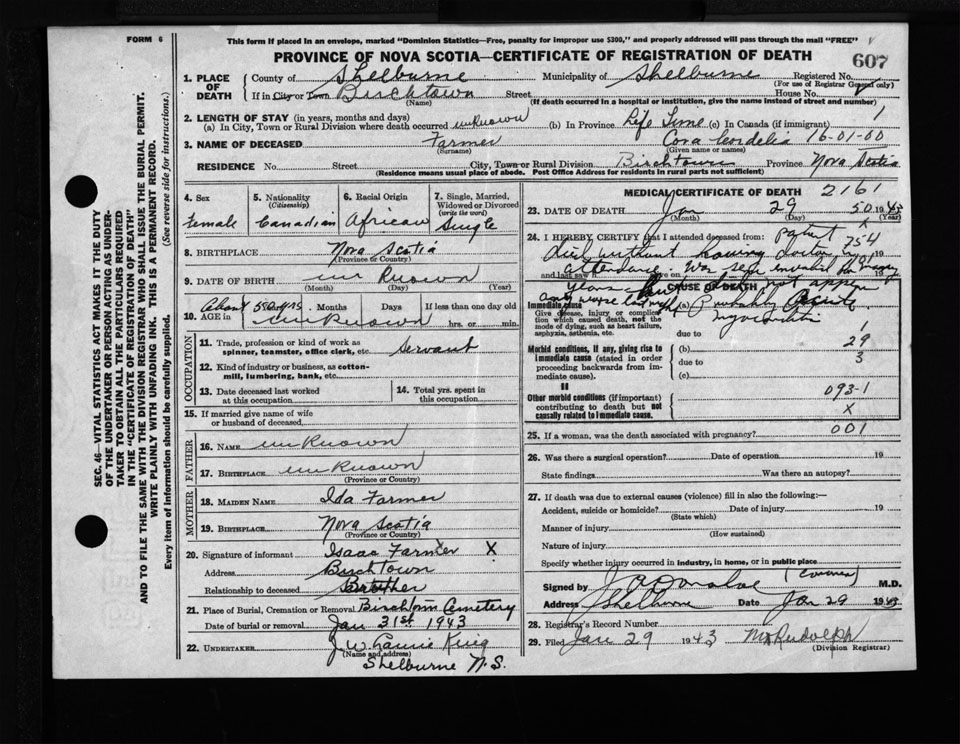 FORM 6
This form if placed in an envelope, marked "Dominion Statistics—Free, penalty for improper use $300," and properly addressed will pass through the mail "FREE"
PROVINCE OF NOVA SCOTIA—CERTIFICATE OF REGISTRATION OF DEATH
607
1. PLACE OF DEATH County of Shelburne Municipality of Shelburne Registered No.
(For use of Registrar General only)
If in City or Town Birchtown Street House No.
(Name) (If death occurred in a hospital or institution, give the name instead of street and number)
2. LENGTH OF STAY (in years, months and days)
(a) In City, Town or Rural Division where death occurred unknown (b) In Province Life Time (c) In Canada (if immigrant) 1
3. NAME OF DECEASED Farmer Cora Cordelia 16-01-00
(Surname) (Given name or names)
RESIDENCE No. Street City, Town or Rural Division Birchtown Province Nova Scotia
(Residence means usual place of abode. Post Office Address for residents in rural parts not sufficient)
4. Sex
Female
5. Nationality (Citizenship)
Canadian
6. Racial Origin
African
7. Single, Married, Widowed or Divorced (write the word)
Single
8. BIRTHPLACE Nova Scotia
(Province or Country)
9. DATE OF BIRTH unknown
(Month) (Day) (Year)
10. AGE in About 50 yrs Months Days If less than one day old
unknown hrs. or min.
OCCUPATION
11. Trade, profession or kind of work as spinner, teamster, office clerk, etc. Servant
12. Kind of industry or business, as cotton-mill, lumbering, bank, etc.
13. Date deceased last worked at this occupation
14. Total yrs. spent in this occupation
15. If married give name of wife or husband of deceased
FATHER
16. NAME unknown
17. BIRTHPLACE unknown
(Province or Country)
MOTHER
18. MAIDEN NAME Ida Farmer
19. BIRTHPLACE Nova Scotia
(Province or Country)
20. Signature of informant Isaac Farmer X
Address Birchtown
Relationship to deceased Brother
21. Place of Burial, Cremation or Removal Birchtown Cemetery
Date of burial or removal Jan 31st 1943
22. UNDERTAKER J. W. King
(Name and address)
Shelburne N.S.
MEDICAL CERTIFICATE OF DEATH 2161
23. DATE OF DEATH Jan 29 50 1943
(Month) (Day) (Year)
24. I HEREBY CERTIFY that I attended deceased from: patient 754
died without having Doctor in
and last saw h alive on
attendance was semi invalid for many
years
CAUSE OF DEATH
Immediate cause (a) Probably Acute
Give disease, injury or complication which caused death, not the mode of dying, such as heart failure, asphyxia, asthenia, etc.
myocarditis
due to 1
Morbid conditions, if any, giving rise to immediate cause (stated in order proceeding backwards from immediate cause).
(b) 29
due to 3
(c)
II
Other morbid conditions (if important) contributing to death but not causally related to immediate cause.
093-1
X
25. If a woman, was the death associated with pregnancy? 001
26. Was there a surgical operation? Date of operation 19
State findings Was there an autopsy?
27. If death was due to external causes (violence) fill in also the following:—
Accident, suicide or homicide? Date of injury 19
(State which)
Manner of injury
(How sustained)
Nature of injury
Specify whether injury occurred in industry, in home, or in public place
Signed by Donahoe (Coroner) M.D.
Address Shelburne Date Jan 29 1943
28. Registrar's Record Number
29. Filed Jan 29 1943 Rudolph
(Division Registrar)
SEC. 46—VITAL STATISTICS ACT MAKES IT THE DUTY
OF THE UNDERTAKER OR PERSON ACTING AS UNDER-
TAKER TO OBTAIN ALL THE PARTICULARS REQUIRED
IN THE "CERTIFICATE OF REGISTRATION OF DEATH"
AND TO FILE THE SAME WITH THE DIVISION REGISTRAR WHO SHALL ISSUE THE BURIAL PERMIT.
WRITE PLAINLY WITH UNFADING INK. THIS IS A PERMANENT RECORD.
Every item of information should be carefully supplied. (See reverse side for instructions.)